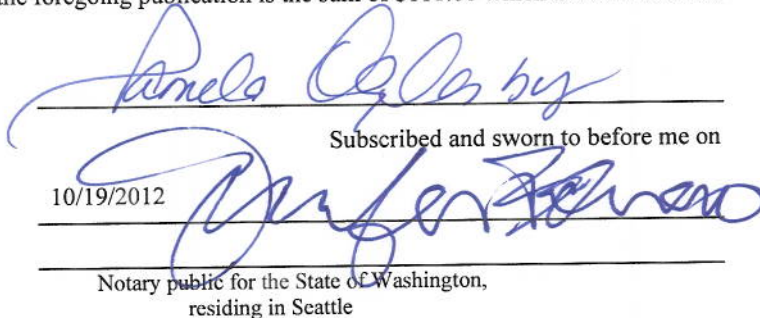 the foregoing publication is the sum of
Pamela Oglesby
Subscribed and sworn to before me on
10/19/2012
Notary public for the State of Washington,
residing in Seattle